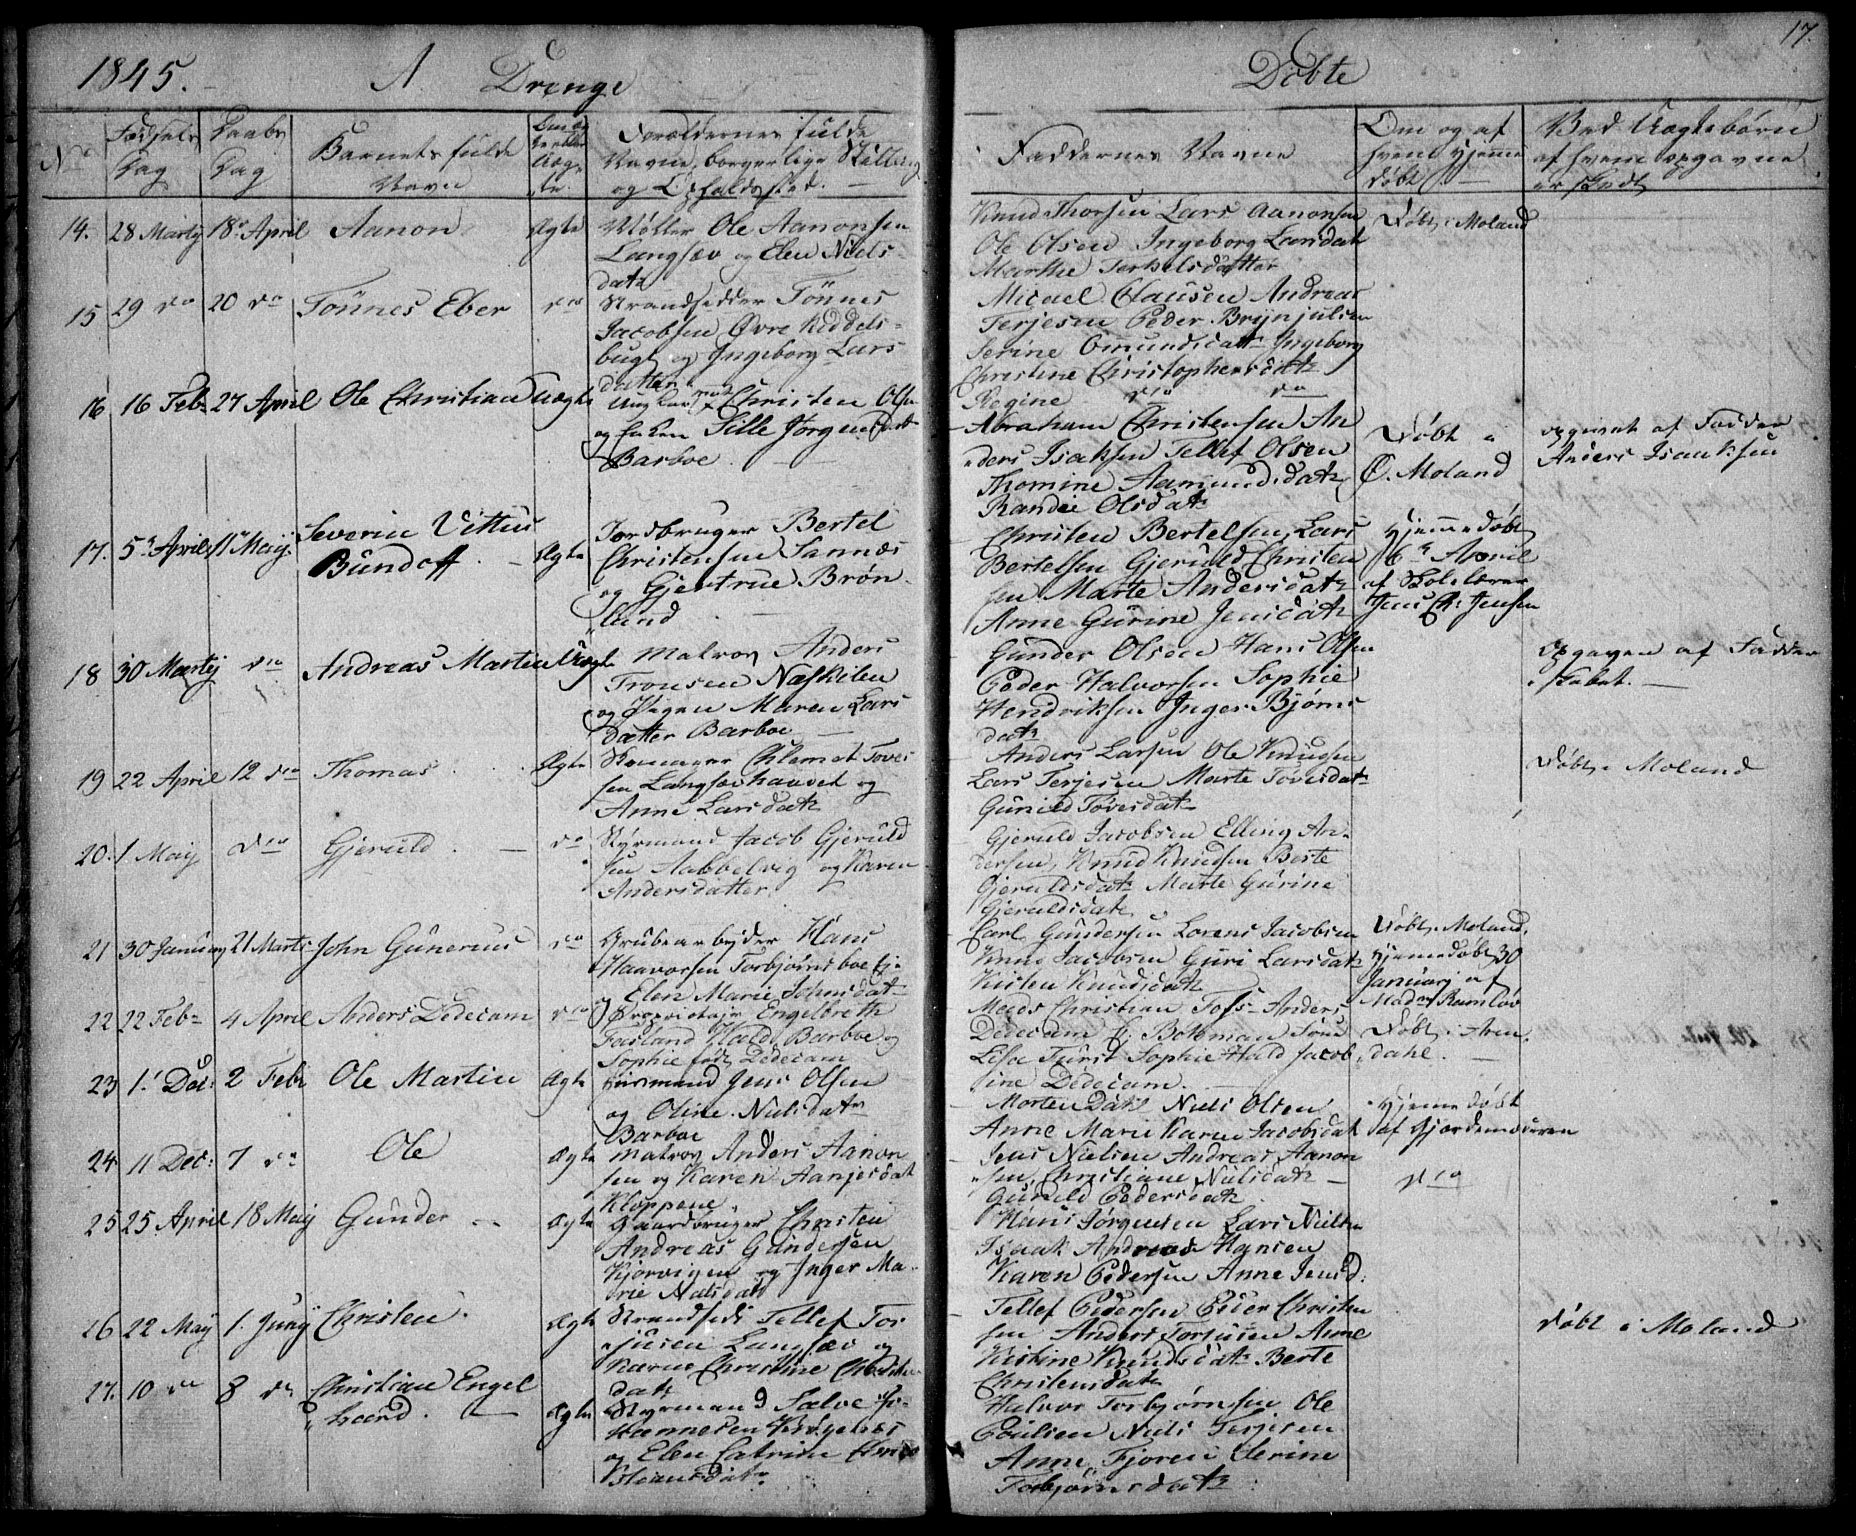 1845. A. Drenge
Døbte
17.
No
Fødsels Dag
Daabs Dag
Barnets fulde Navn
Forældrenes fulde Navne, borgerlige Stilling og Opholdssted.
Faddernes Navne
Om og af hvem hjemmedøbt
Ved Uægtebørn af hvem opgavne er skedt
14. 28 Martij 18de April Aanon Ægte
Møller Ole Aanonsen
Langsæv og Elen Niels-
datr
Knud Thorsen Lars Aanonsen
Ole Olsen Ingeborg Larsdatr
Marthe Terkelsdatter
Døbt i Moland
15 29 do 20 do Tönnes Eber do
Strandsidder Tönnes
Jacobsen Øvre Kiddels-
bugt og Ingeborg Lars
datter
Micael Hansen Andreas
Terjesen Peder Brynjulsen
Serine Omundsdatr Ingeborg
Christine Christophersdatr
Regine do do
16 16 Feb: 27 April Ole Christian Uægte
Ungkar Christen Olsen
og Enken Sille Jørgensdatr
Barboe.
Abraham Christensen An
ders Isaksen Tellef Olsen
Thomine Aamundsdatr
Randie Olsdatr
Døbt i
Ø. Moland
opgivet af Fadder
Anders Isaaksen
17. 5te April 11te Maij Severin Vittus
Bündoff. Ægte
Jordbruger Bertel
Christensen Sannæs
og Gjertrue Brøn
lund
Christen Bertelsen, Lars
Bertelsen Gjeruld Christen
sen Marte Andersdatr
Anne Gurine Jensdatr
Hjemmedøbt
6te April
af Skolelærer
Jens Ch: Jensen
18 30 Martij do Andreas Martin Uægte
Matros Anders
Tronsen Næskilen
og Pigen Maren Lars
datter Barboe
Gunder Olsen Hans Olsen
Peder Halvorsen Sophie
Hendriksen Inger Bjørns
datr
Opgaven af Fadder
skabet.
19 22 April 12 do Thomas Ægte
Klemet Toves
sen Langsæehauvet og
Anne Larsdatr
Anders Larsen Ole Knudsen
Lars Terjesen Marte Tovesdatr
Gunild Tovesdatr
Døbt i Moland
20. 1 Maij do Gjeruld do
Styrmand Jacob Gjeruld
sen Aabbelvig og Karen
Andersdatter
Gjeruld Jacobsen Elling An-
dersen, Knud Knudsen Berte
Gjeruldsdatr Marte Gurine
Gjeruldsdatr
21 30 Januarij 21 Marts John Gunerius do
Grubearbejder Hans
Haavorsen Torbjørnsboe Ej:
og Elen Marie Johnsdatr
Carl Gundersen Lorens Jacobsen
Knud Jacobsen Guri Larsdatr
Kisten Knudsdatr
Døbt i Moland,
Hjemmedøbt 30
Januarij af
Madm Ramløv
22 22 Feb: 4 April Anders Dedecam do
Proprietair Engelbreth
Fasland Hald Barboe og
Sophie født Dedecam
Meeds Christian Anders
Dedecam Botzman Tone
Lisa Türst Sophie Hald Jacob
ine Dedecam.
Døbt i Aren
dahl.
23 1' Dec: 2 Febr Ole Martin Ægte
Jens Olsen
og Oline Nielsdatr
Barboe
Morten Dahl Niels Olsen
Anne Marie Karen Jacobsdatr
Hjemmedøbt
af Gjordemoderen
24 11 Dec: 7 do Ole Ægte
Matros Anders Aanon
sen og Karen Aanjesdatr
Kloppene
Jens Nielsen Andreas Aanon
sen, Christiane Nielsdatr
Gunild Pedersdatr
do
25 25 April 18 Maij Gunder Ægte
Gaardbruger Christen
Andreas Gundersen
Kjorvigen og Inger Ma-
rie Nielsdatr
Hans Jørgensen Lars Nielsen
Isaak Andreas Hansen
Karen Pedersen Anne Jensd:
26 22 Maij 1. Junij Christen Ægte
Strandsidr Tellef Tor
jusen Langsæe og
Karne Christine Christen
datr
Tellef Pedersen Peder Christen
sen Anders Torjusen Anne
Kistine Knudsdatr Berte
Christensdatr
Døbt i Moland
27. 10 do 8 do Christian Engel
hard. Ægte
Styrmand Salve Jo-
hannesen Krøgenæs
og Elen Catrine
datr
Halvor Torbjørnsen Ole
Poulsen Niels Terjesen
Anne Fjoren Serine
Torbjørnsdatr